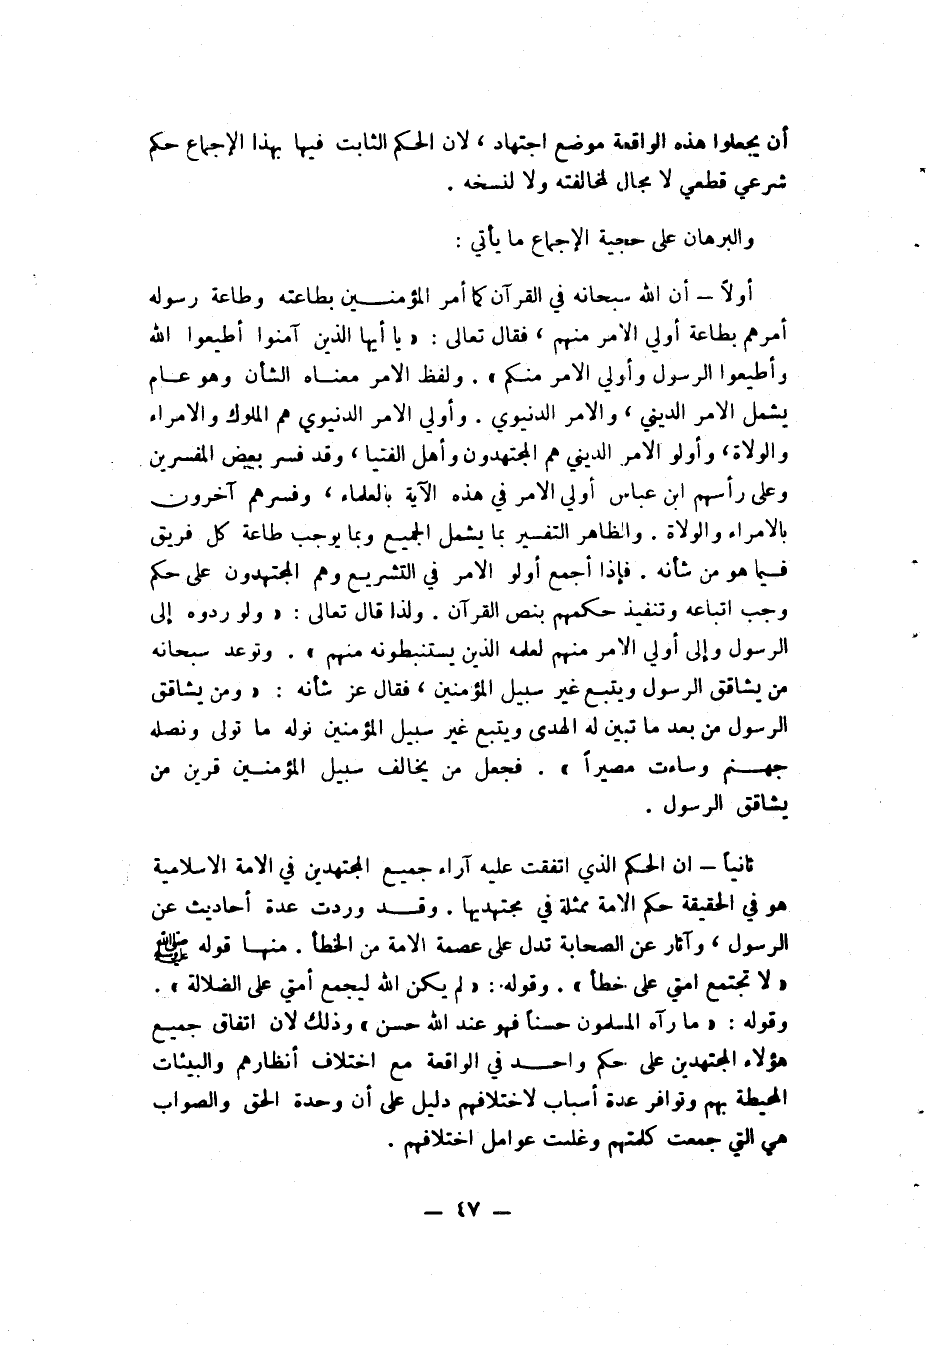 أن يجعلوا هذه الواقعة موضع اجتهاد ، لان الحكم الثابت فيها بهذا الإجماع حكم
شرعي قطعي لا مجال لمخالفته ولا لنسخه .
والبرهان على حجية الإجماع ما يأتي :
أولاً – أن الله سبحانه في القرآن كما أمر المؤمنـــين بطاعته وطاعة رسوله
أمرهم بطاعة أولي الامر منهم ، فقال تعالى : « يا أيها الذين آمنوا أطيعوا الله
وأطيعوا الرسول وأولي الامر منكم » . ولفظ الامر معناه الشأن وهو عـام
يشمل الامر الديني ، والامر الدنيوي . وأولي الامر الدنيوي هم الملوك والامراء
والولاة، وأولو الامر الديني هم المجتهدون وأهل الفتيا ، وقد فسر بعض المفسرين
وعلى رأسهم ابن عباس أولي الامر في هذه الآية بالعلماء ، وفسرهم آخرون
بالامراء والولاة . والظاهر التفسير بما يشمل الجميع وبما يوجب طاعة كل فريق
فيما هو من شأنه . فإذا أجمع أولو الامر في التشريع وهم المجتهدون على حكم
وجب اتباعه وتنفيذ حكمهم بنص القرآن . ولذا قال تعالى : « ولو ردوه إلى
الرسول وإلى أولي الامر منهم لعلمه الذين يستنبطونه منهم » . وتوعد سبحانه
من يشاقق الرسول ويتبع غير سبيل المؤمنين ، فقال عز شأنه : « ومن يشاقق
الرسول من بعد ما تبين له الهدى ويتبع غير سبيل المؤمنين نوله ما تولى ونصله
جهـــنم وساءت مصيراً » . فجعل من يخالف سبيل المؤمنـــين قرين من
يشاقق الرسول .
ثانياً – ان الحكم الذي اتفقت عليه آراء جميع المجتهدين في الامة الاسلامية
هو في الحقيقة حكم الامة ممثلة في مجتهديها . وقـــد وردت عدة أحاديث عن
الرسول ، وآثار عن الصحابة تدل على عصمة الامة من الخطأ . منهـا قوله ﷺ
« لا تجتمع امتي على خطأ » . وقوله : « لم يكن الله ليجمع أمتي على الضلالة » .
وقوله : « ما رآه المسلمون حسناً فهو عند الله حسن » وذلك لان اتفاق جميع
هؤلاء المجتهدين على حكم واحـــد في الواقعة مع اختلاف أنظارهم والبيئات
المحيطة بهم وتوافر عدة أسباب لاختلافهم دليل على أن وحدة الحق والصواب
هي التي جمعت كلمتهم وغلبت عوامل اختلافهم .
– ٤٧ –